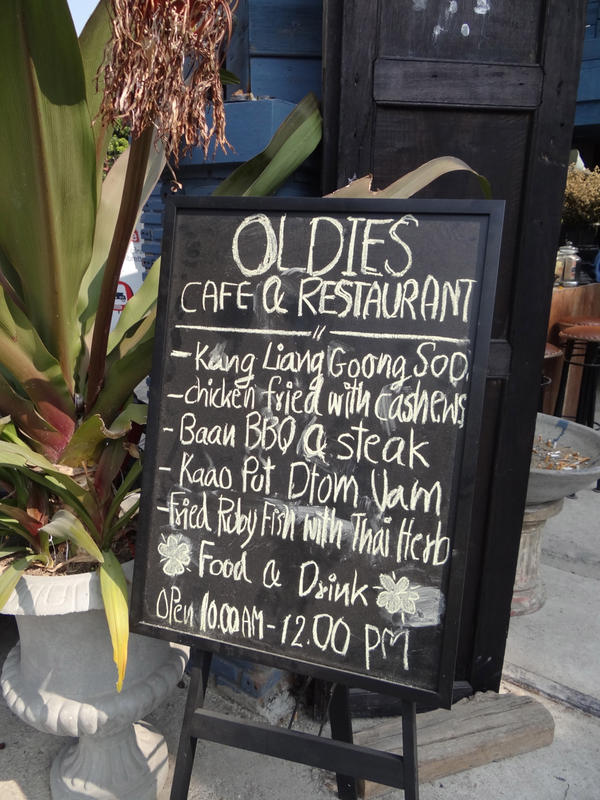 OLDIES
CAFE & RESTAURANT
- Kang Liang Goong Soo
- chicken fried with cashews
- Baan BBQ & steak
- Kaao Put Dtom Yam
- Fried Ruby Fish with Thai Herb
Food & Drink
OPEN 10.00 AM - 12.00 PM